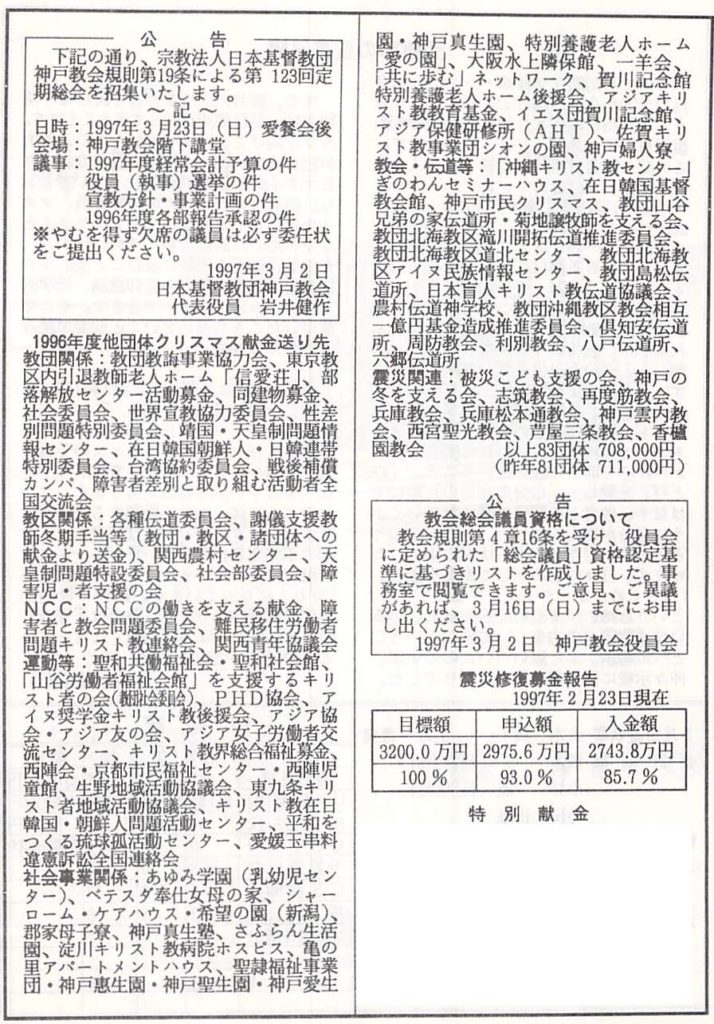 公告
下記の通り、宗教法人日本基督教団
神戸教会規則第19条による第 123回定
期総会を招集いたします。
～ 記 ～
日時：1997年３月23日（日）愛餐会後
会場：神戸教会階下講堂
議事：1997年度経常会計予算の件
役員（執事）選挙の件
宣教方針・事業計画の件
1996年度各部報告承認の件
※やむを得ず欠席の議員は必ず委任状
をご提出ください。
1997年３月２日
日本基督教団神戸教会
代表役員　岩井健作
1996年度他団体クリスマス献金送り先
教団関係：教団教誨事業協力会、東京教
区内引退教師老人ホーム「信愛荘」、部
落解放センター活動募金、同建物募金、
社会委員会、世界宣教協力委員会、性差
別問題特別委員会、靖国・天皇制問題情
報センター、在日韓国朝鮮人・日韓連帯
特別委員会、台湾協約委員会、戦後補償
カンパ、障害者差別と取り組む活動者全
国交流会
教区関係：各種伝道委員会、謝儀支援教
師冬期手当等（教団・教区・諸団体への
献金より送金）、関西農村センター、天
皇制問題特設委員会、社会部委員会、障
害児・者支援の会
ＮＣＣ：ＮＣＣの働きを支える献金、障
害者と教会問題委員会、難民移住労働者
問題キリスト教連絡会、関西青年協議会
運動等：聖和共働福祉会・聖和社会館、
「山谷労働者福祉会館」を支援するキリ
スト者の会（教団社会委員会）、ＰＨＤ協会、ア
イヌ奨学金キリスト教後援会、アジア協
会・アジア友の会、アジア女子労働者交
流センター、キリスト教界総合福祉募金、
西陣会・京都市民福祉センター・西陣児
童館、生野地域活動協議会、東九条キリ
スト者地域活動協議会、キリスト教在日
韓国・朝鮮人問題活動センター、平和を
つくる琉球孤活動センター、愛媛玉串料
違憲訴訟全国連絡会
社会事業関係：あゆみ学園（乳幼児セン
ター）、ベテスダ奉仕女母の家、シャー
ローム・ケアハウス・希望の園（新潟）、
郡家母子寮、神戸真生塾、さふらん生活
園、淀川キリスト教病院ホスピス、亀の
里アパートメントハウス、聖隷福祉事業
団・神戸恵生園・神戸聖生園・神戸愛生
園・神戸真生園、特別養護老人ホーム
「愛の園」、大阪水上隣保館、一羊会、
「共に歩む」ネットワーク、賀川記念館
特別養護老人ホーム後援会、アジアキリ
スト教教育基金、イエス団賀川記念館、
アジア保健研修所（ＡＨＩ）、佐賀キリ
スト教事業団シオンの園、神戸婦人寮
教会・伝道等：「沖縄キリスト教センター」
ぎのわんセミナーハウス、在日韓国基督
教会館、神戸市民クリスマス、教団山谷
兄弟の家伝道所・菊地譲牧師を支える会、
教団北海教区滝川開拓伝道推進委員会、
教団北海教区道北センター、教団北海教
区アイヌ民族情報センター、教団島松伝
道所、日本盲人キリスト教伝道協議会、
農村伝道神学校、教団沖縄教区教会相互
一億円基金造成推進委員会、倶知安伝道
所、周防教会、利別教会、八戸伝道所、
六郷伝道所
震災関連：被災こども支援の会、神戸の
冬を支える会、志筑教会、再度筋教会、
兵庫教会、兵庫松本通教会、神戸雲内教
会、西宮聖光教会、芦屋三条教会、香櫨
園教会　以上83団体 708,000円
（昨年81団体 711,000円）
公告
教会総会議員資格について
教会規則第４章16条を受け、役員会
に定められた「総会議員」資格認定基
準に基づきリストを作成しました。事
務室で閲覧できます。ご意見、ご異議
があれば、３月16日（日）までにお申
し出ください。
1997年３月２日　神戸教会役員会
震災修復募金報告
1997年２月23日現在
目標額　申込額　入金額
3200.0万円　2975.6万円　2743.8万円
100％　93.0％　85.7％
特別献金